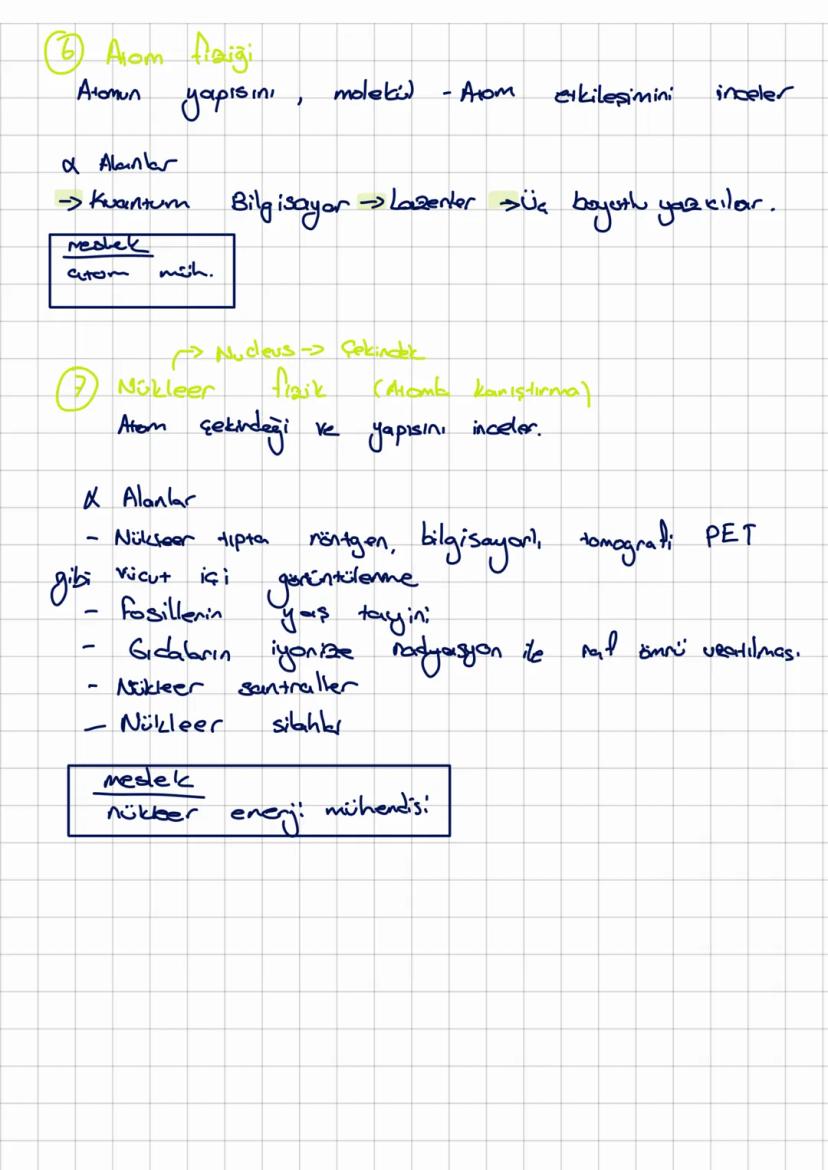 6 Atom fiziği
Atomun yapısını, molekül - Atom etkileşimini inceler
α Alanlar
→ Kuantum Bilgisayar → Lazerler → Üç boyutlu yazıcılar.
meslek
atom müh.
→ Nucleus → Çekirdek
7 Nükleer fizik (Atomla karıştırma)
Atom çekirdeği ve yapısını inceler.
α Alanlar
- Nükleer tıpta röntgen, bilgisayarlı, tomografi PET
gibi vücut içi görüntüleme
- Fosillerin yaş tayini
- Gıdaların iyonize radyasyon ile raf ömrü uzatılması.
- Nükleer santraller
- Nükleer silahlar
meslek
nükleer enerji mühendisi